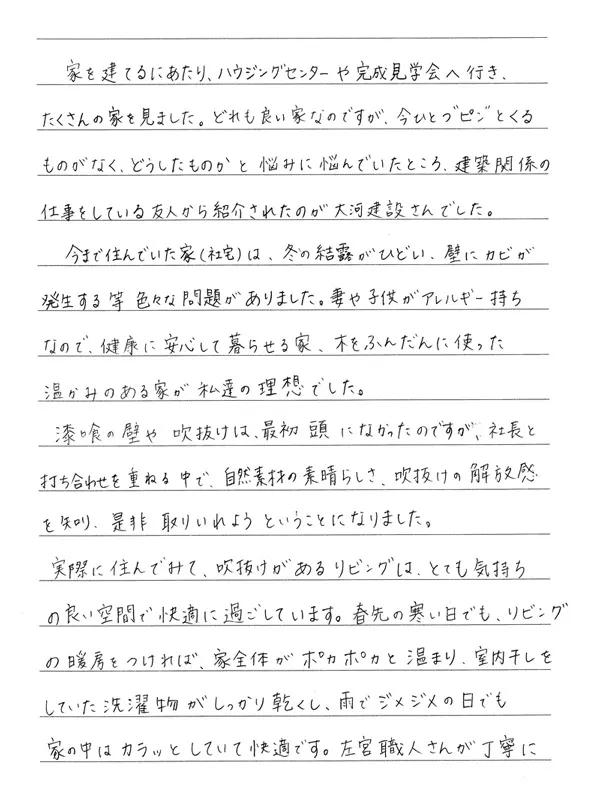 家を建てるにあたり、ハウジングセンターや完成見学会へ行き、
たくさんの家を見ました。どれも良い家なのですが、今ひとつ"ピン"とくる
ものがなく、どうしたものかと悩みに悩んでいたところ、建築関係の
仕事をしている友人から紹介されたのが大河建設さんでした。
今まで住んでいた家(社宅)は、冬の結露がひどい、壁にカビが
発生する等色々な問題がありました。妻や子供がアレルギー持ち
なので、健康に安心して暮らせる家、木をふんだんに使った
温かみのある家が私達の理想でした。
漆喰の壁や吹抜けは、最初頭になかったのですが、社長と
打ち合わせを重ねる中で、自然素材の素晴らしさ、吹抜けの解放感
を知り、是非取りいれようということになりました。
実際に住んでみて、吹抜けがあるリビングは、とても気持ち
の良い空間で快適に過ごしています。春先の寒い日でも、リビング
の暖房をつければ、家全体がポカポカと温まり、室内干しを
していた洗濯物がしっかり乾くし、雨でジメジメの日でも
家の中はカラッとしていて快適です。左官職人さんが丁寧に